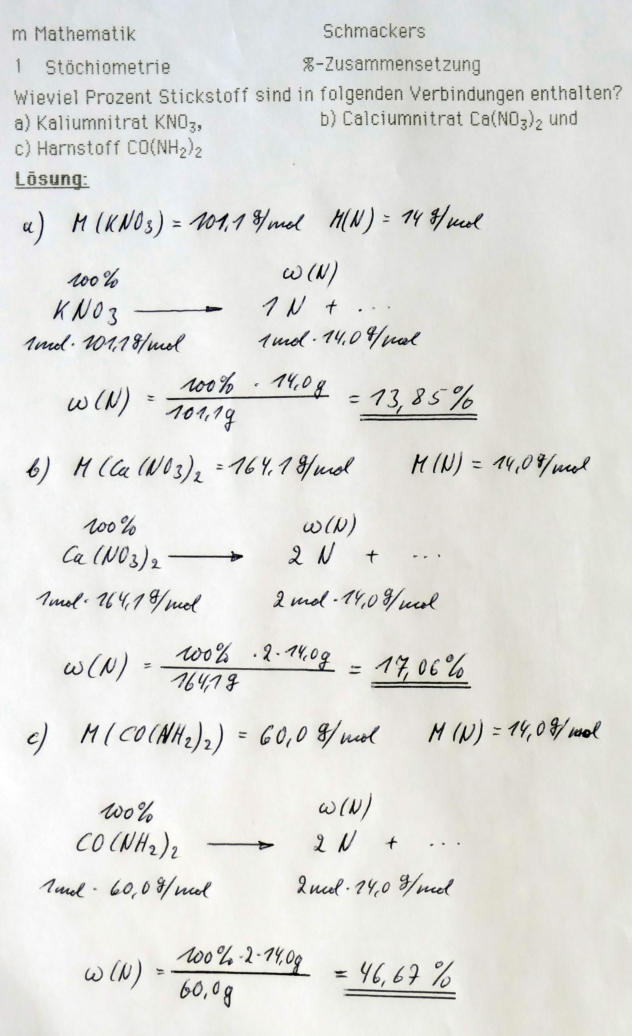 m Mathematik Schmackers
1 Stöchiometrie %-Zusammensetzung
Wieviel Prozent Stickstoff sind in folgenden Verbindungen enthalten?
a) Kaliumnitrat KNO₃, b) Calciumnitrat Ca(NO₃)₂ und
c) Harnstoff CO(NH₂)₂
Lösung:
a) M(KNO₃) = 101,1 g/mol M(N) = 14 g/mol
100% ω(N)
KNO₃ ⟶ 1 N + ...
1mol · 101,1 g/mol 1mol · 14,0 g/mol
ω(N) = 100% · 14,0g / 101,1g = 13,85%
b) M(Ca(NO₃)₂ = 164,1 g/mol M(N) = 14,0 g/mol
100% ω(N)
Ca(NO₃)₂ ⟶ 2 N + ...
1mol · 164,1 g/mol 2 mol · 14,0 g/mol
ω(N) = 100% · 2 · 14,0g / 164,1g = 17,06%
c) M(CO(NH₂)₂) = 60,0 g/mol M(N) = 14,0 g/mol
100% ω(N)
CO(NH₂)₂ ⟶ 2 N + ...
1mol · 60,0 g/mol 2mol · 14,0 g/mol
ω(N) = 100% · 2 · 14,0g / 60,0g = 46,67 %